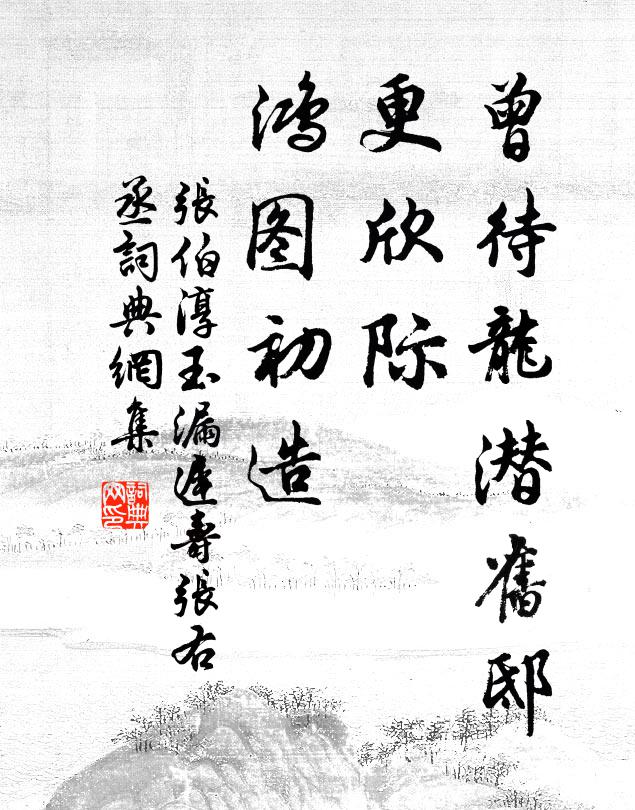 曾待龍潜舊邸
更欣际
鴻图初造
張伯淳玉漏遲壽張右
丞詞典網集
詞典網印